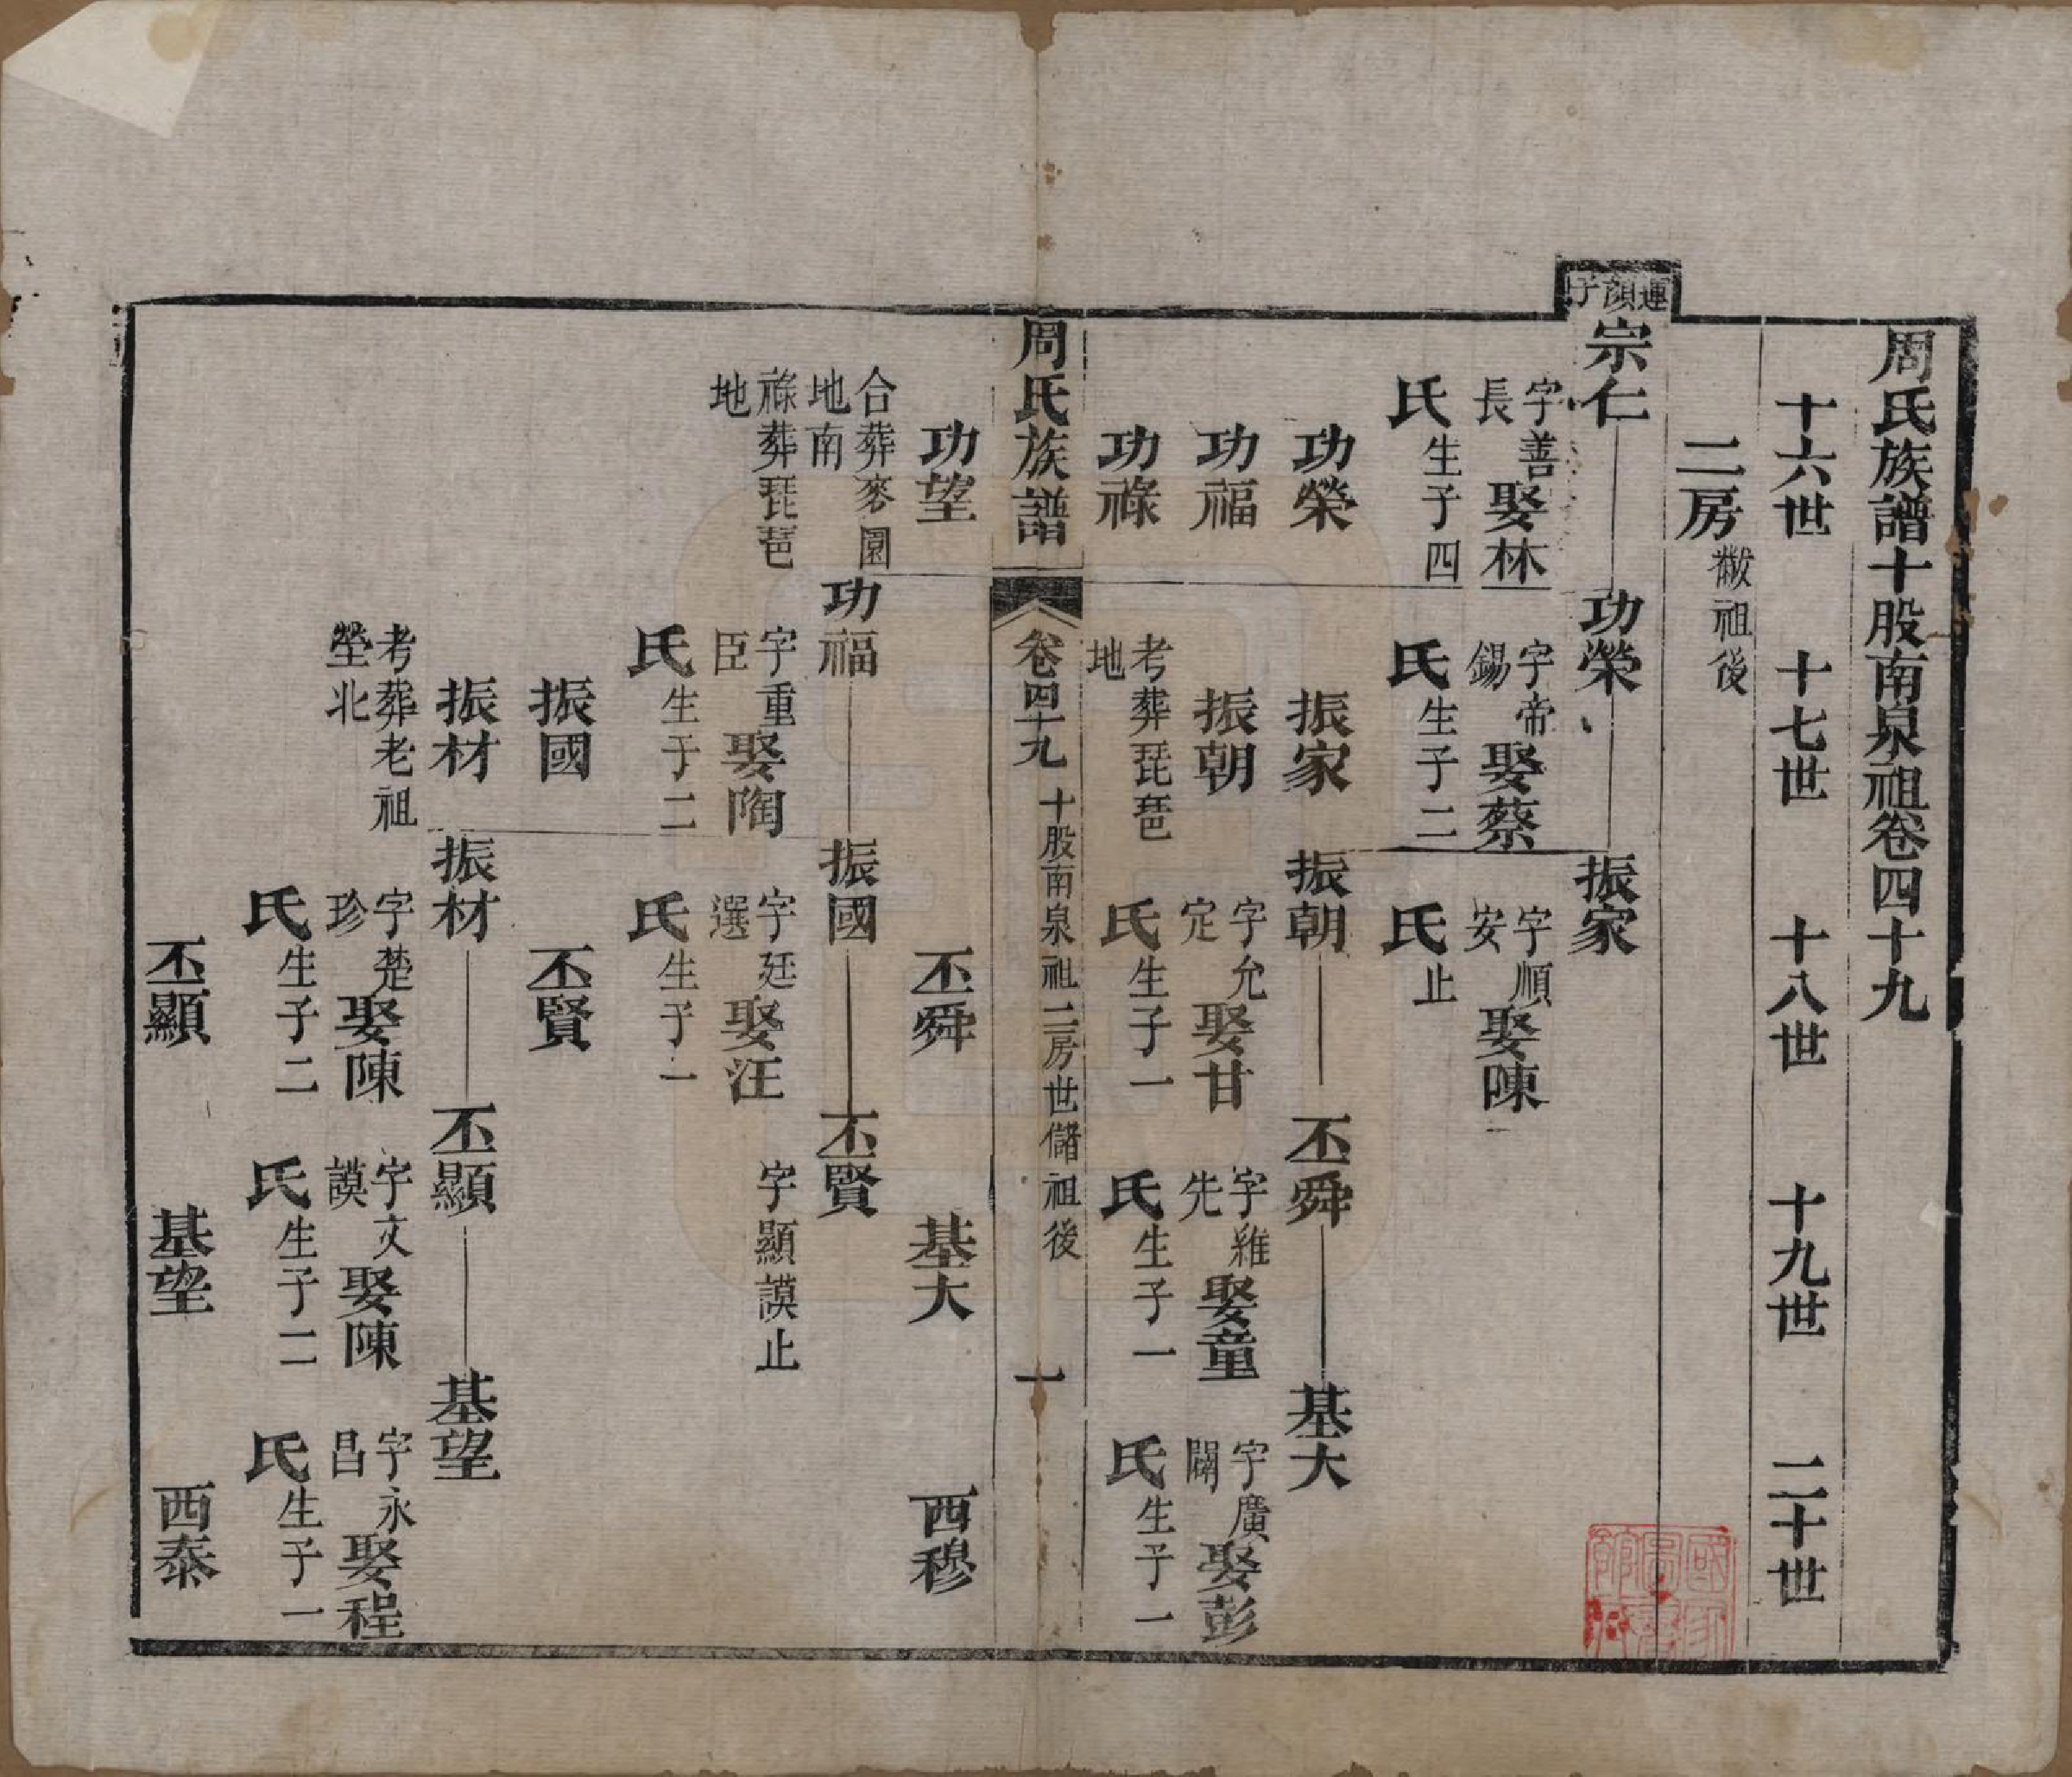 周氏族譜十股南泉祖卷四十九
十六世 十七世 十八世 十九世 二十世
二房 黻祖後
連顏子
宗仁 功榮 振家
字善長娶林氏生子四
字帝錫娶蔡氏生子二
字順安娶陳氏止
功榮 振家 振朝 丕舜 基大
功福 振朝
字允定娶甘氏生子一
字雍先娶童氏生子一
字廣闢娶彭氏生子一
功祿
考葬琵琶地
周氏族譜 卷四十九 十股南泉祖二房世儲祖後 一
功望 丕舜 基大 西穆
合葬麥園地南
祿葬琵琶地
功福 振國 丕賢
字重臣娶陶氏生子二
字廷選娶汪氏生子一
字顯謨止
振國 丕賢
振材 振材 丕顯 基望
考葬老祖塋北
字楚珍娶陳氏生子二
字文謨娶陳氏生子二
字永昌娶程氏生子一
丕顯 基望 西泰